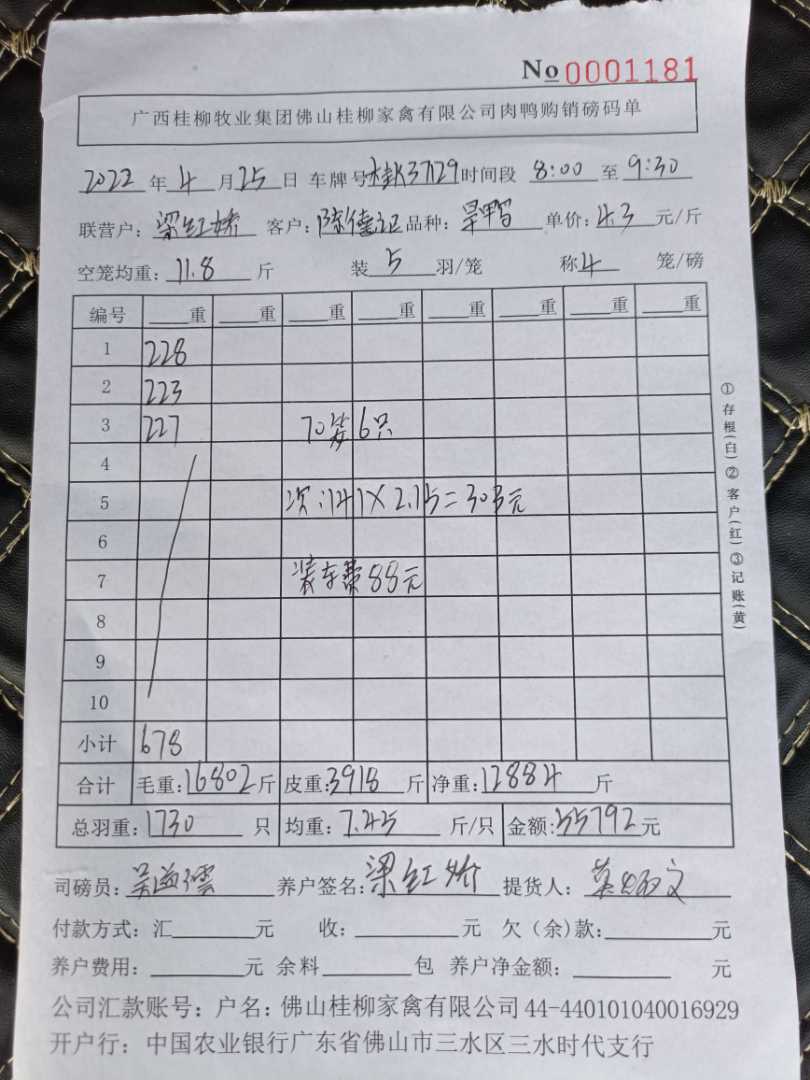 No 0001181
广西桂柳牧业集团佛山桂柳家禽有限公司肉鸭购销磅码单
2022 年 4 月 25 日 车牌号 37129 时间段 8:00 至 9:30
联营户: 梁红娇 客户: 陈德记 品种: 旱鸭 单价: 4.3 元/斤
空笼均重: 11.8 斤 装 5 羽/笼 称 4 笼/磅
编号 重 重 重 重 重 重 重 重
1 228
2 223
3 227 70笼6只
4
5 次:141×2.15=303元
6
7 装车费88元
8
9
10
小计 678
合计 毛重: 16802 斤 皮重: 3918 斤 净重: 12884 斤
总羽重: 1730 只 均重: 7.45 斤/只 金额: 55792 元
司磅员: 养户签名: 梁红娇 提货人:
付款方式: 汇 元 收: 元 欠(余)款: 元
养户费用: 元 余料 包 养户净金额: 元
公司汇款账号: 户名: 佛山桂柳家禽有限公司 44-440101040016929
开户行: 中国农业银行广东省佛山市三水区三水时代支行
①存根(白)②客户(红)③记账(黄)